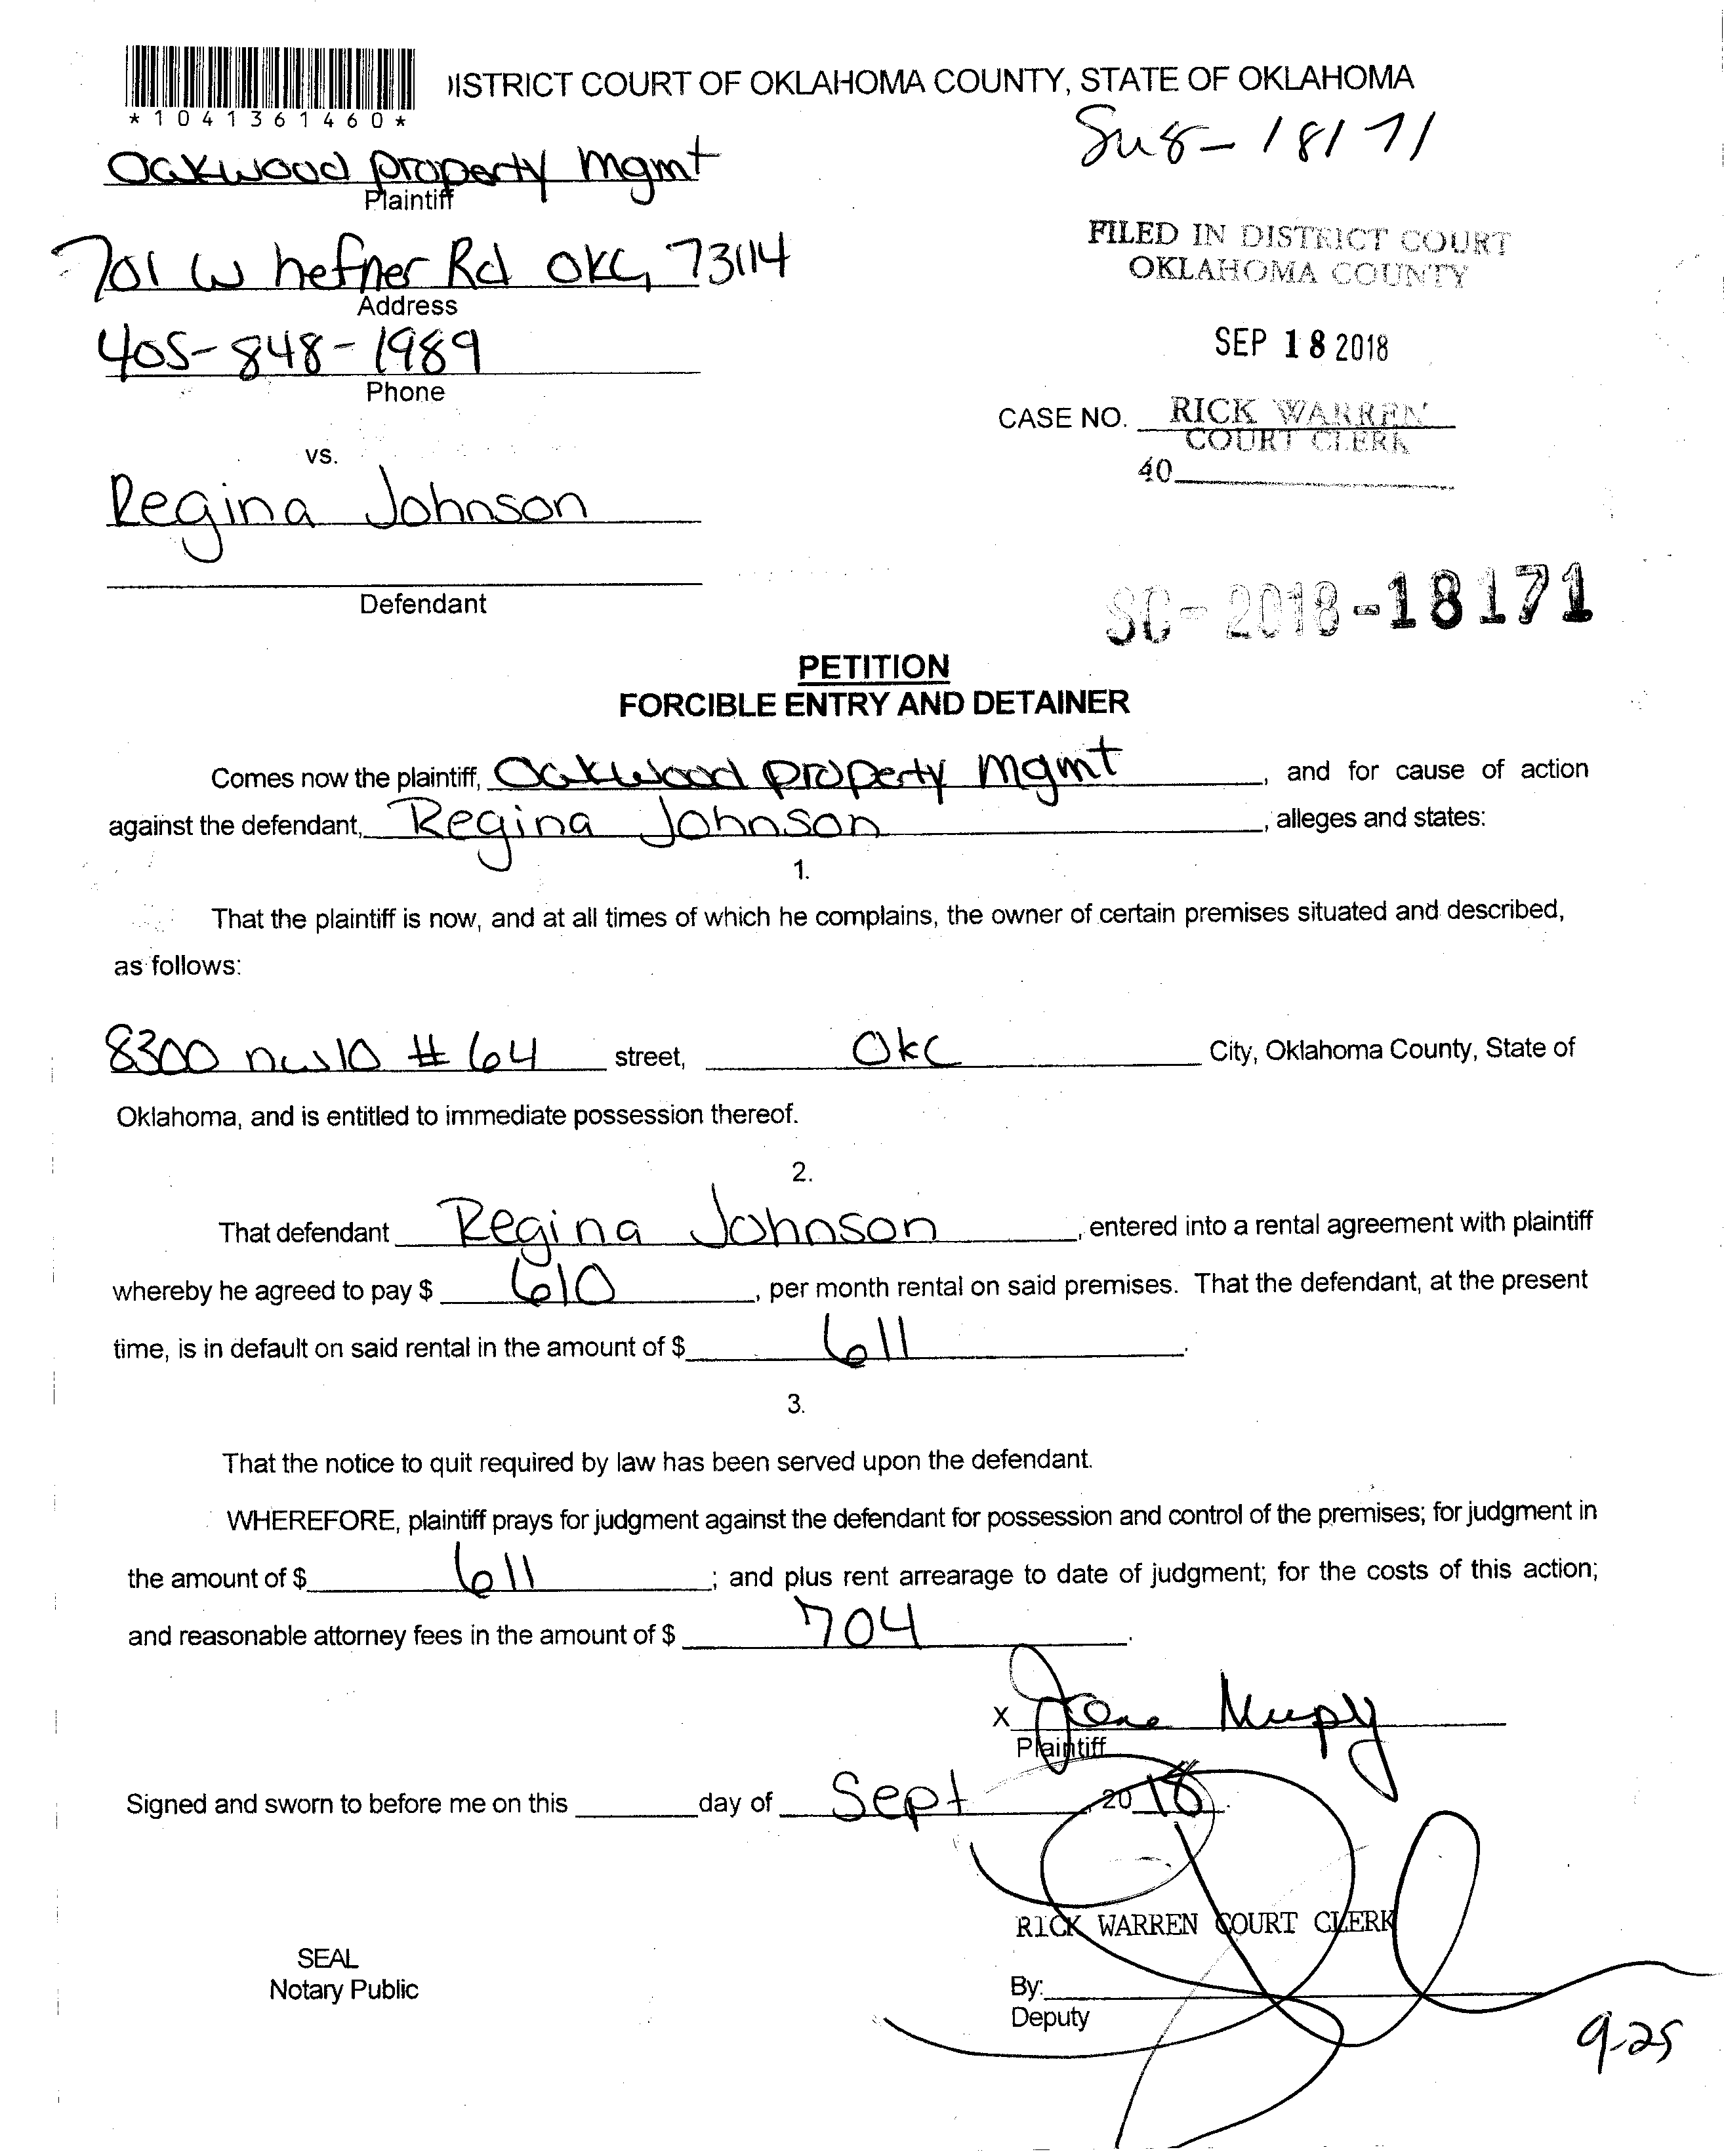 *1041361460*
DISTRICT COURT OF OKLAHOMA COUNTY, STATE OF OKLAHOMA
18171
Oakwood property mgmt
Plaintiff
701 W hefner Rd OKC, 73114
Address
FILED IN DISTRICT COURT
OKLAHOMA COUNTY
405-848-1989
Phone
SEP 18 2018
CASE NO. RICK WARREN
COURT CLERK
40
vs.
Regina Johnson
Defendant
SC-2018-18171
PETITION
FORCIBLE ENTRY AND DETAINER
Comes now the plaintiff, Oakwood property mgmt, and for cause of action
against the defendant, Regina Johnson, alleges and states:
1.
That the plaintiff is now, and at all times of which he complains, the owner of certain premises situated and described,
as follows:
8300 nw10 #64 street, OKC City, Oklahoma County, State of
Oklahoma, and is entitled to immediate possession thereof.
2.
That defendant Regina Johnson, entered into a rental agreement with plaintiff
whereby he agreed to pay $ 610, per month rental on said premises. That the defendant, at the present
time, is in default on said rental in the amount of $ 611.
3.
That the notice to quit required by law has been served upon the defendant.
WHEREFORE, plaintiff prays for judgment against the defendant for possession and control of the premises; for judgment in
the amount of $ 611; and plus rent arrearage to date of judgment; for the costs of this action;
and reasonable attorney fees in the amount of $ 704.
X
Plaintiff
Signed and sworn to before me on this day of Sept, 2018.
RICK WARREN COURT CLERK
SEAL
Notary Public
By:
Deputy
9-25